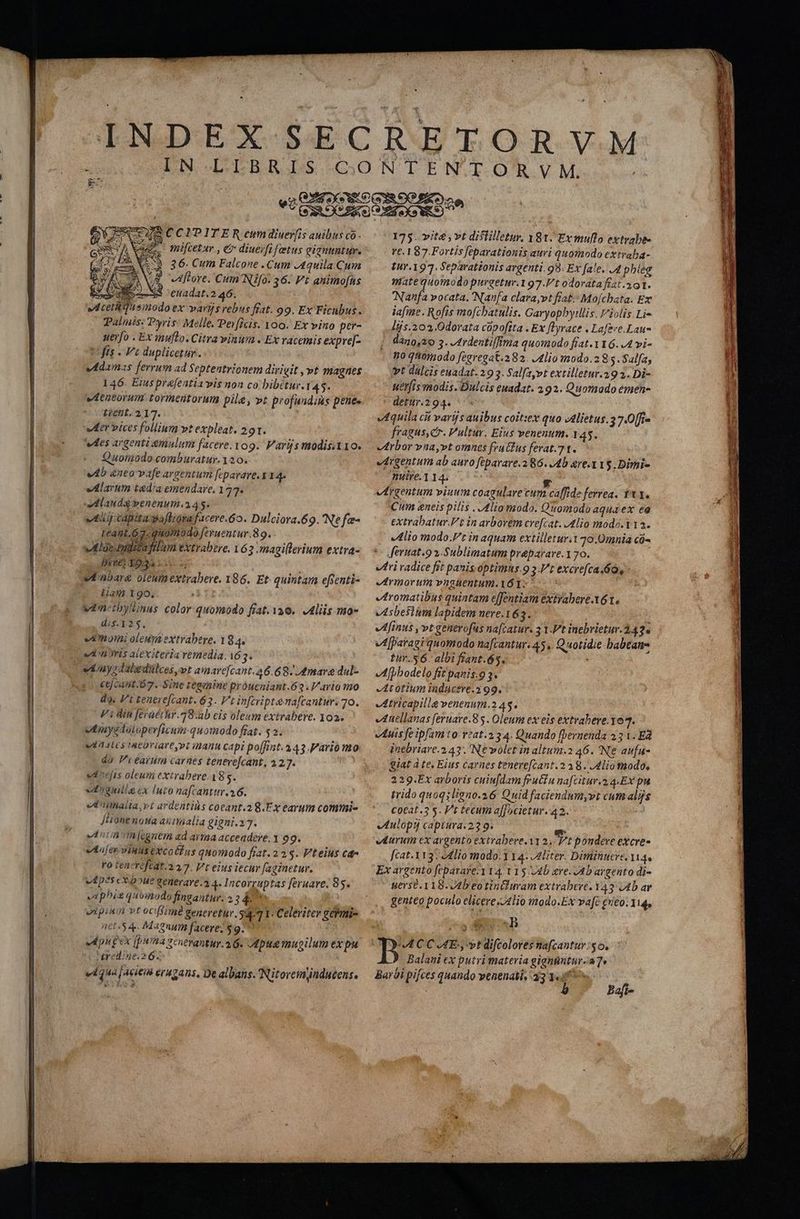 INDEX SECRETORVM
IN LIBRIS CONTENTORVM.
ACCIPITER cum diuersis auibus cō-
miscetur, & diuersi fœtus gignuntur.
36. Cum Falcone. Cum Aquila Cum
Astore. Cum Niso. 36. Vt animosus
euadat. 246.
Acetū quomodo ex varijs rebus fiat. 99. Ex Ficubus.
Palmis. Pyris. Melle. Persicis. 100. Ex vino per-
uerso. Ex musto. Citra vinum. Ex racemis expres-
sis. Vt duplicetur.
Adamas ferrum ad Septentrionem dirigit, vt magnes
146. Eius præsentia vis non cohibetur. 145.
Aeneorum tormentorum pilæ, vt profundiùs pene-
trent. 217.
Aer vices follium vt expleat. 291.
Aes argenti æmulum facere. 109. Varijs modis. 110.
Quomodo comburatur. 120.
Ab æneo vase argentum separare. 114.
Alarum tædia emendare. 177.
Alaudæ venenum. 245.
Alij capita grossiora facere. 60. Dulciora. 69. Ne fœ-
teant. 67. quomodo seruentur. 89.
extrahere. 163. magisterium extra-
here.
Ambaræ oleum extrahere. 186. Et quintam essenti-
tiam 190.
Amethyllinus color quomodo fiat. 120. Alijs mo-
dis. 125.
Amomi oleum extrahere. 184.
Amoris alexiteria remedia. 163.
Amygdalæ dulces, vt amarescant. 46. 68. Amaræ dul-
cescant. 67. Sine tegmine proueniant. 63. Vario mo
do. Vt tenerescant. 63. Vt inscriptæ nascantur. 70.
Vt diu seruētur. 78. ab eis oleum extrahere. 102.
Amygdaloperficum quomodo fiat. 52.
Anates inebriare, vt manu capi possint. 243. Vario mo
do Vt earum carnes tenerescant, 227.
Anesis oleum extrahere. 185.
Anguillæ ex luto nascantur. 26.
Animalia, vt ardentiùs coeant. 28. Ex earum commi-
stione noua animalia gigni. 27.
Animum segnem ad arma accendere. 199.
Anser viuus excoctus quomodo fiat. 225. Vt eius ca-
ro tenerescat. 227. Vt eius iecur saginetur.
Apes ex boue generare. 24. Incorruptas seruare. 85.
Aphia quomodo fingantur. 234.
Apium vt ocissimè generetur. 54. 71. Celeriter germi-
net. 54. Magnum facere. 59.
Apuæ ex spuma generantur. 26. Apuæ mugilum ex pu
tredine. 26.
Aqua faciem erugans. De albans. Nitorem inducens.
175. vitæ, vt distilletur. 181. Ex musto extrahe-
re. 187. Fortis separationis auri quomodo extraha-
tur. 197. Separationis argenti. 98. Ex sale. A phleg
mate quomodo purgetur. 197. Vt odorata fiat. 201.
Nanfa vocata. Nanfa clara, vt fiat. Moschata. Ex
iasme. Rosis moschatulis. Garyophyllis. Violis. Li-
lijs. 202. Odorata cōposita. Ex styrace. Lasere. Lau-
dano, 203. Ardentissima quomodo fiat. 116. A vi-
no quomodo segregat. 282. Alio modo. 285. Salsa,
vt dulcis euadat. 293. Salsa, vt extilletur. 292. Di-
uersis modis. Dulcis euadat. 292. Quomodo emen-
detur. 294.
Aquila cū varijs auibus coit: ex quo Alietus. 37. Ossi-
fragus, &. Vultur. Eius venenum. 145.
Arbor vna, vt omnes fructus ferat. 71.
Argentum ab auro separare. 286. Ab ære. 115. Dimi-
nuire. 114.
Argentum viuum coagulare cum casside ferrea. 111.
Cum æneis pilis. Alio modo. Quomodo aqua ex eo
extrahatur. Vt in arborem crescat. Alio modo. 112.
Alio modo. Vt in aquam extilletur. 170. Omnia cō-
seruat. 92. Sublimatum præparare. 170.
Ari radice fit panis optimus. 93. Vt excrescat. 60.
Armorum vnguentum. 161.
Aromatibus quintam essentiam extrahere. 161.
Asbestum lapidem nere. 163.
Asinus, vt generosus nascatur. 31. Vt inebrietur. 243.
Asparagi quomodo nascantur. 45. Quotidie habean-
tur. 56. albi fiant. 65.
Asphodelo fit panis. 93.
Atotium inducere. 299.
Atricapillæ venenum. 245.
Auellanas seruare. 85. Oleum ex eis extrahere. 107.
Auis se ipsam torreat. 234. Quando spernenda. 231. Eā
inebriare. 243. Ne volet in altum. 246. Ne aufu-
giat à te. Eius carnes tenerescant. 228. Alio modo.
229. Ex arboris cuiusdam fructu nascitur. 24. Ex pu
trido quoq; ligno. 26. Quid faciendum, vt cum alijs
coeat. 35. Vt tecum associetur. 42.
Aulopij captura. 239.
Aurum ex argento extrahere. 112. Vt pondere excre-
scat. 113. Alio modo. 114. Aliter. Diminuere. 114.
Ex argento separare. 114. 115. Ab ære. Ab argento di-
uersè. 118. Ab eo tincturam extrahere. 143. Ab ar
genteo poculo elicere. Alio modo. Ex vase æneo. 114.
B
BACCAE, vt discolores nascantur. 50.
Balani ex putri materia gignuntur. 27.
Barbi pisces quando venenati. 231.
b Basi-